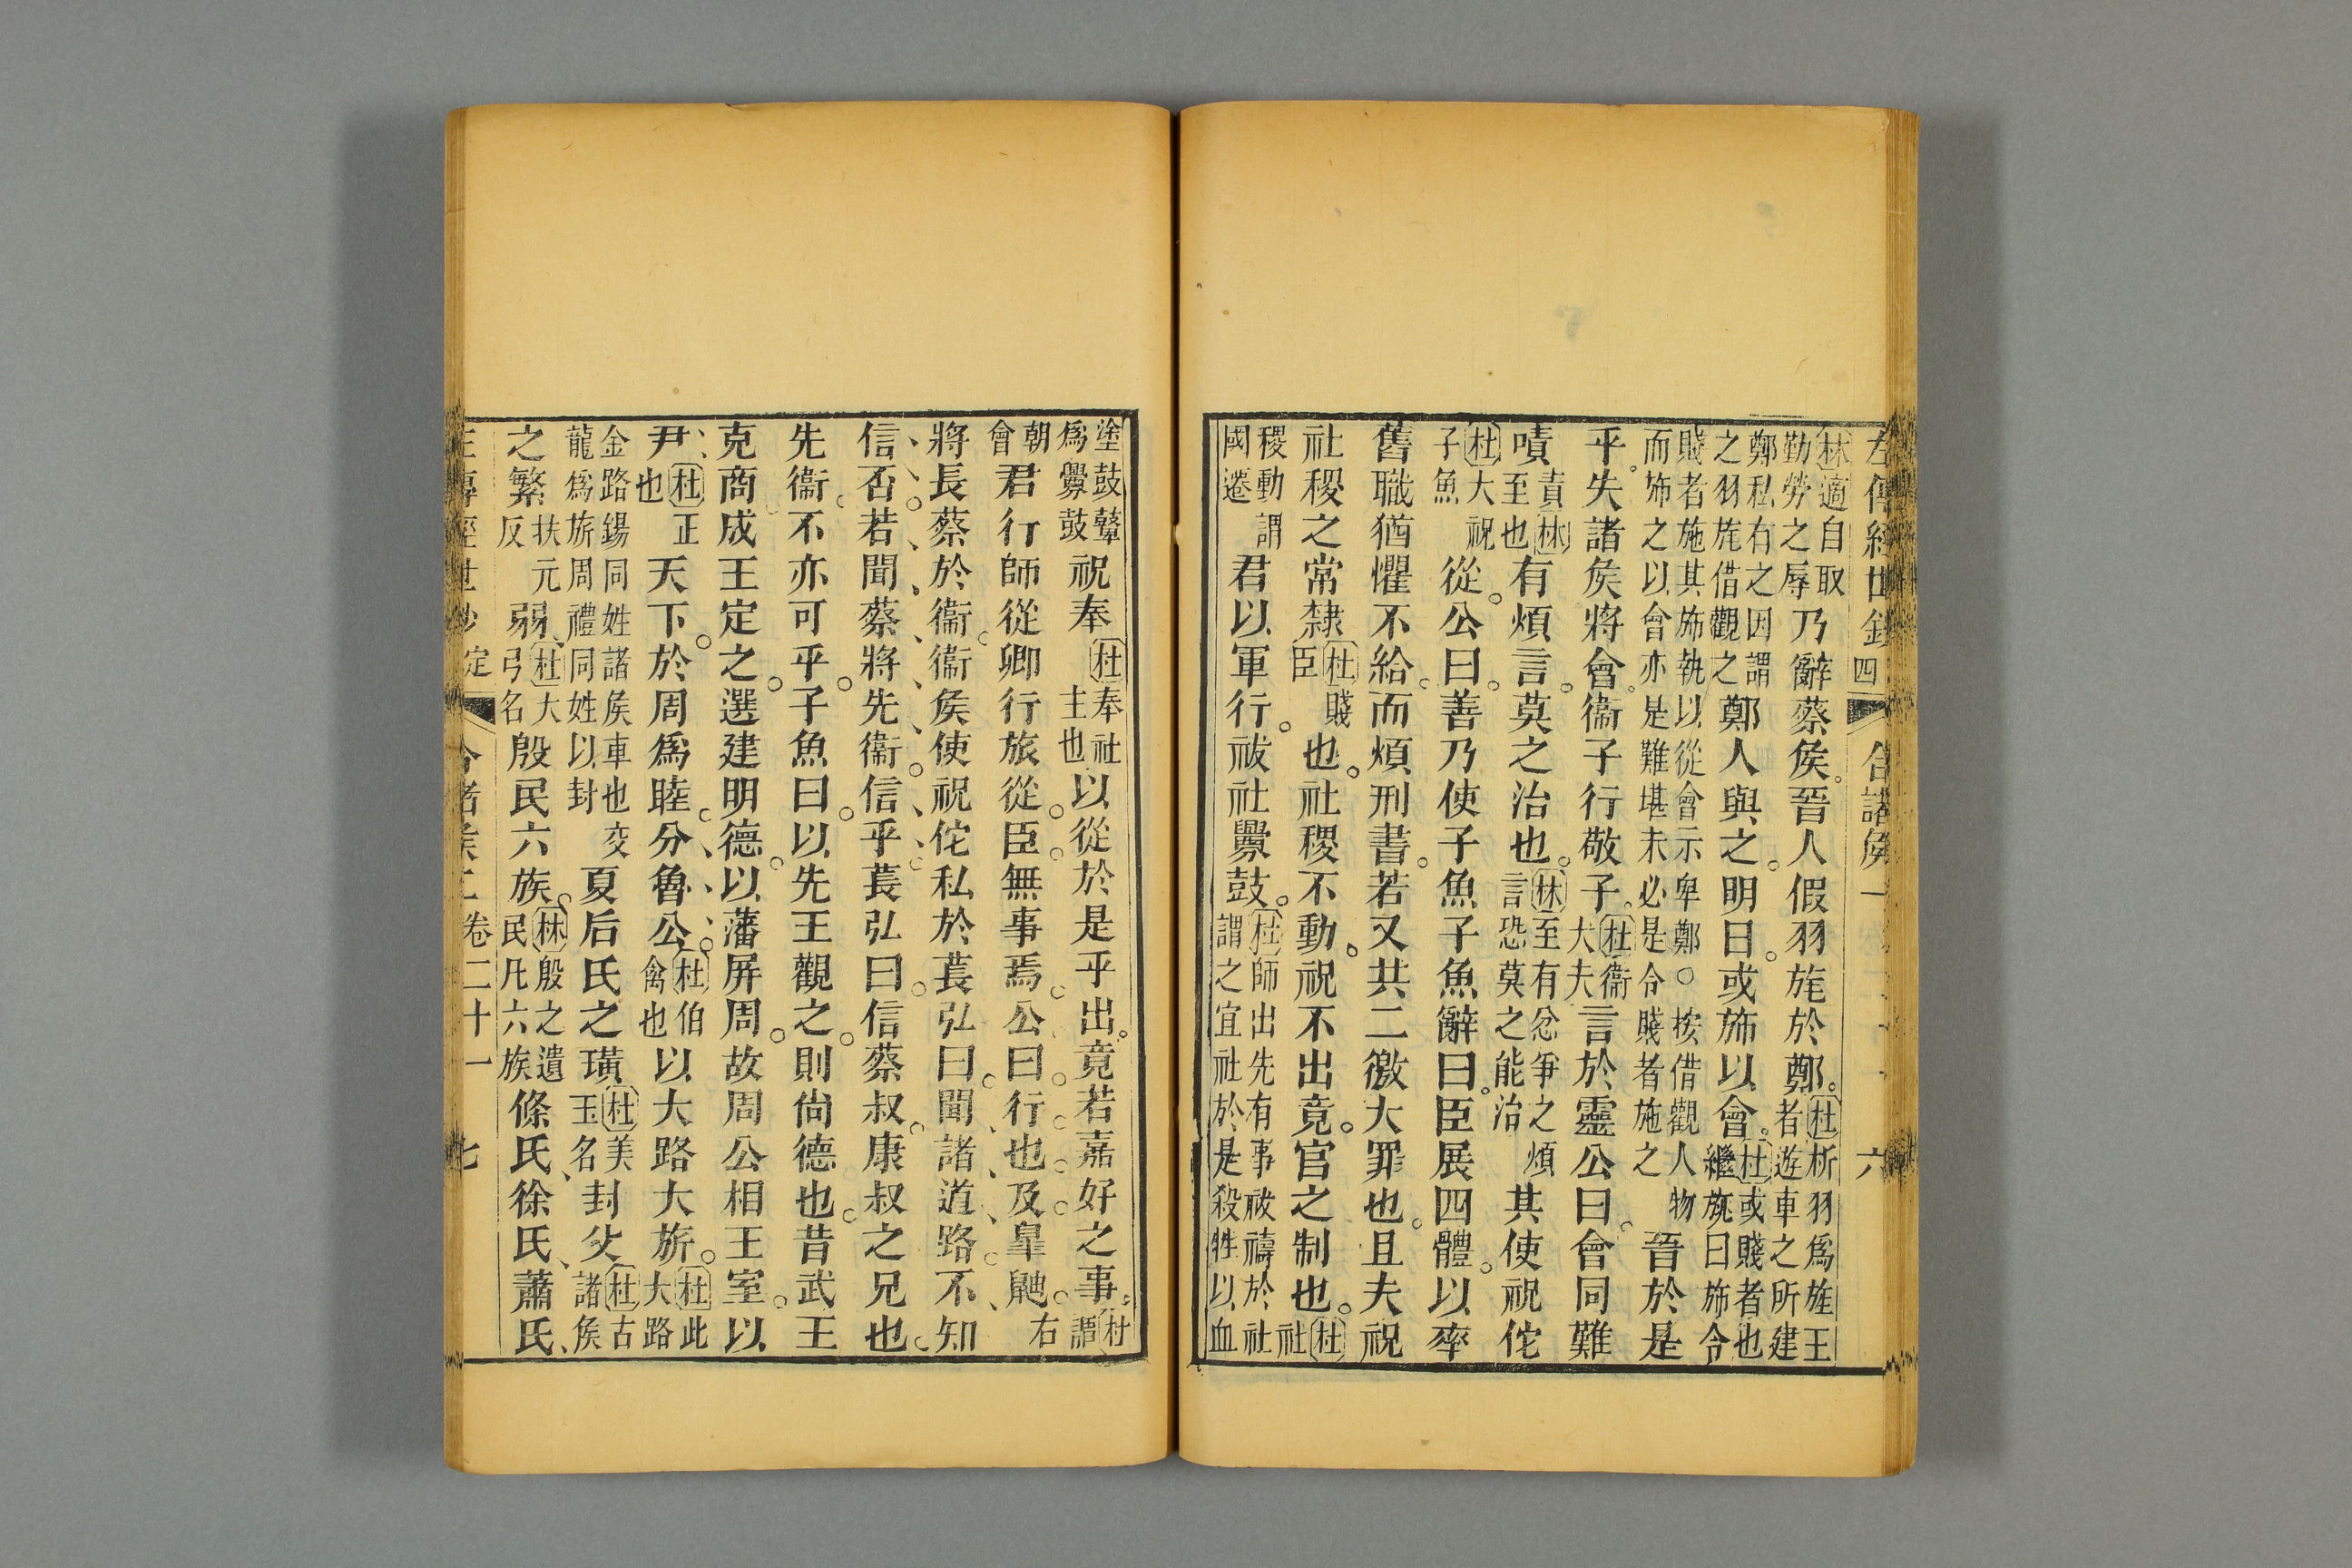 左傳經世鈔四 合諸矦一 六
林適自取勤勞之辱乃辭蔡矦。晉人假羽旄於鄭。杜析羽爲旌王者遊車之所建
鄭私右之因謂之羽旄借觀之鄭人與之。明日。或斾以會。杜或賤者也繼旐曰斾令
賤者施其斾執以從會示卑鄭○按借觀人物而斾之以會亦是難堪未必是令賤者施之晉於是
乎。失諸矦將會。衞子行敬子。杜衞大夫言於靈公曰。會同難
嘖責林至也有煩言。莫之治也。林至有忿爭之煩言恐莫之能治其使祝佗
杜大祝子魚從。公曰。善乃使子魚子魚辭曰。臣展四體。以率
舊職猶懼不給。而煩刑書。若又共二徼大罪也。且夫祝
社稷之常隸杜賤臣也。社稷不動。祝不出竟。官之制也。杜社
稷動謂國遷君以軍行。祓社釁鼓。杜師出先有事祓禱於社謂之宜社於是殺牲以血
塗鼓鼙爲釁鼓祝奉杜奉社主也以從於是乎出。竟若嘉好之事。杜謂
朝會君行師從卿行旅從。臣。無事焉。公曰。行也。及皐鼬。右
將長蔡於衞。衞矦使祝佗私於萇弘曰。聞諸道路。不知
信否。若聞蔡將先衞。信乎。萇弘曰。信蔡叔。康叔之兄也。
先衞。不亦可乎。子魚曰。以先王觀之。則尙德也。昔武王
克商。成王定之。選建明德。以藩屏周。故周公相王室。以
尹杜正也天下。於周爲睦。分魯公。杜伯禽也以大路大旂。杜此大路
金路錫同姓諸矦車也交龍爲旂周禮同姓以封夏后氏之璜杜美玉名封父杜古諸矦
之繁扶元反弱、杜大弓名殷民六族。林殷之遺民凡六族條氏、徐氏、蕭氏、
卷二十一 七